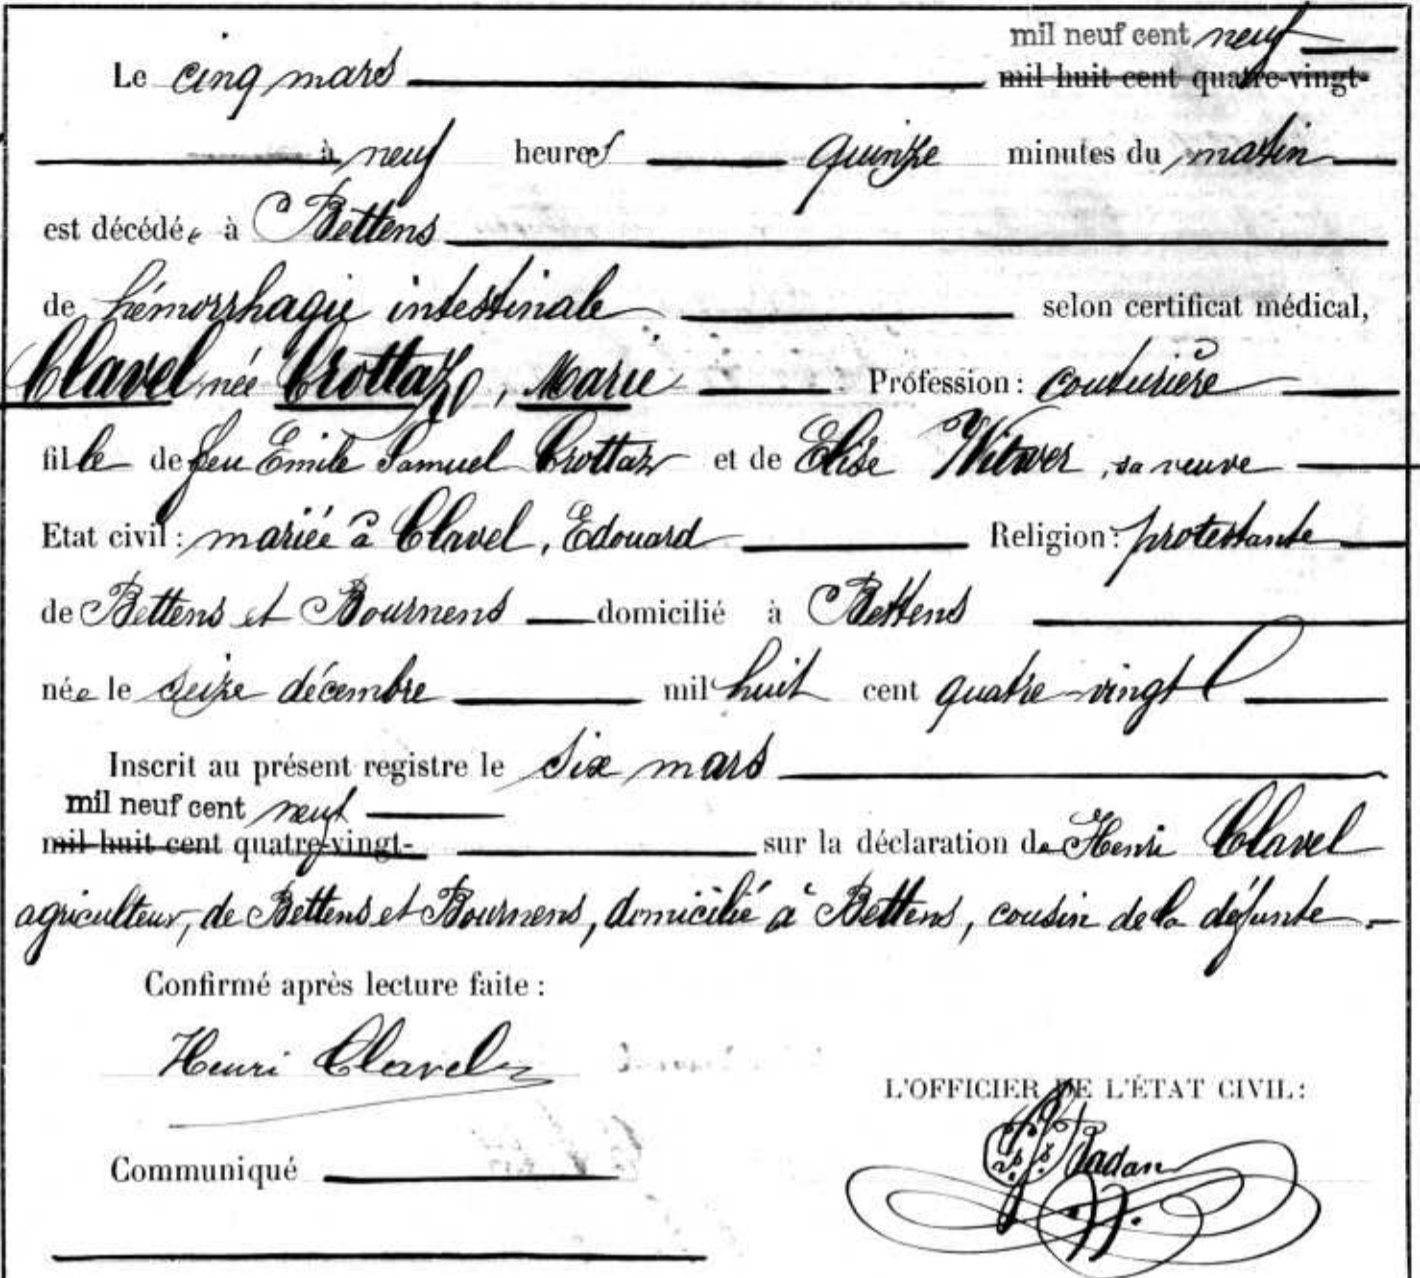 mil neuf cent neuf
Le cinq mars mil huit cent quatre-vingt-
à neuf heures quinze minutes du matin
est décédée à Bettens
de hémorrhagie intestinale selon certificat médical,
Clavel née Crottaz, Marie Profession : couturière
fille de feu Emile Samuel Crottaz et de Elise Witwer, sa veuve
Etat civil : mariée à Clavel, Edouard Religion : protestante
de Bettens et Bournens domicilié à Bettens
née le seize décembre mil huit cent quatre-vingt
Inscrit au présent registre le six mars
mil neuf cent neuf
mil huit cent quatre-vingt- sur la déclaration de Henri Clavel
agriculteur, de Bettens et Bournens, domicilié à Bettens, cousin de la défunte.
Confirmé après lecture faite :
Henri Clavel
L'OFFICIER DE L'ÉTAT CIVIL :
Communiqué